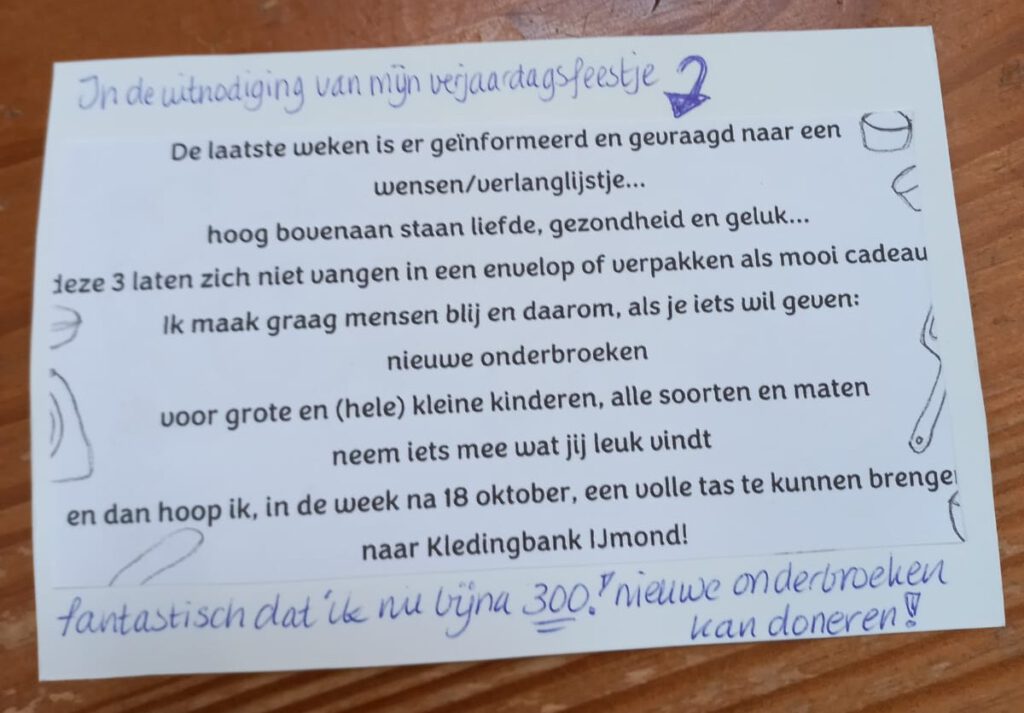 In de uitnodiging van mijn verjaardagsfeestje
De laatste weken is er geïnformeerd en gevraagd naar een
wensen/verlanglijstje...
hoog bovenaan staan liefde, gezondheid en geluk...
deze 3 laten zich niet vangen in een envelop of verpakken als mooi cadeau
Ik maak graag mensen blij en daarom, als je iets wil geven:
nieuwe onderbroeken
voor grote en (hele) kleine kinderen, alle soorten en maten
neem iets mee wat jij leuk vindt
en dan hoop ik, in de week na 18 oktober, een volle tas te kunnen brengen
naar Kledingbank IJmond!
fantastisch dat ik nu bijna 300! nieuwe onderbroeken
kan doneren!